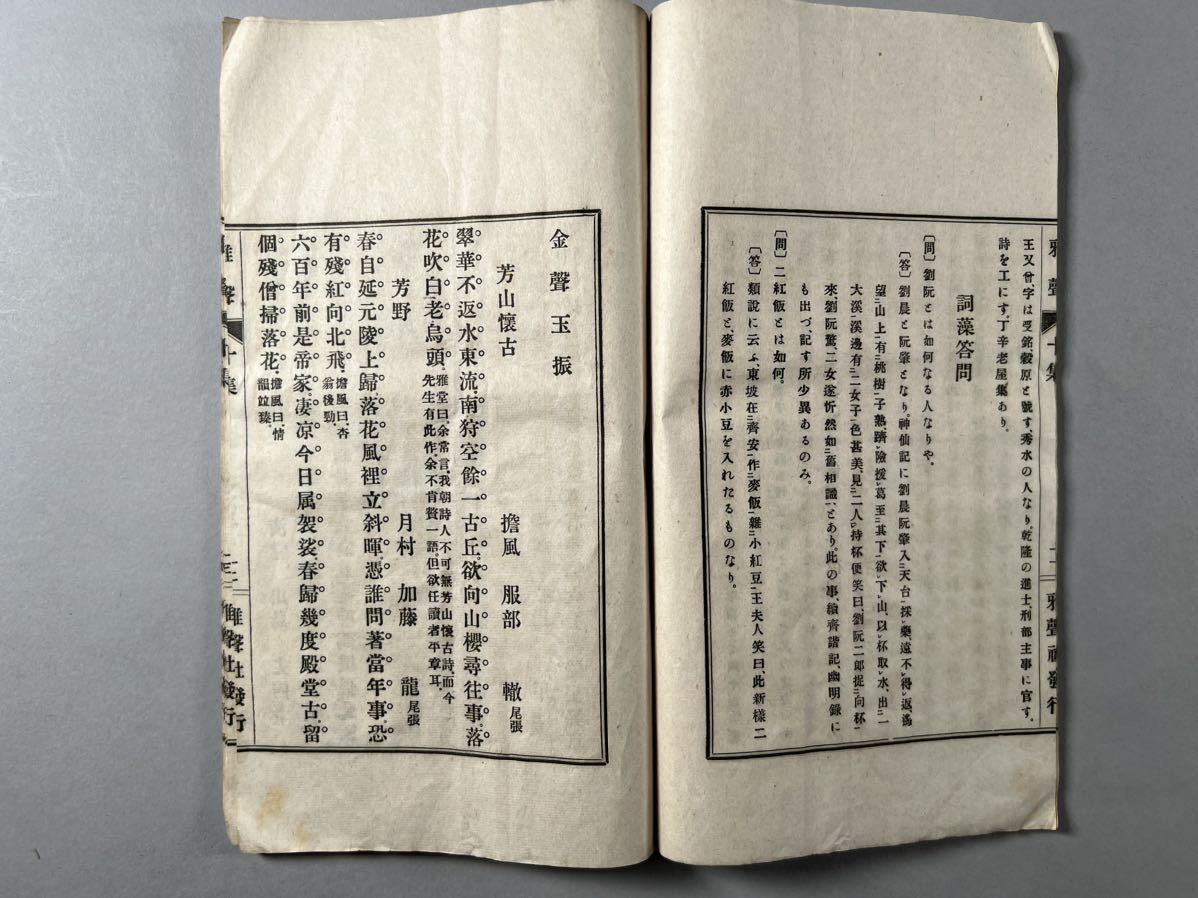 王又曾字は受銘、穀原と號す、秀水の人なり。乾隆の進士、刑部主事に官す、
詩を工にす、丁辛老屋集あり。
詞藻答問
〔問〕劉阮とは如何なる人なりや。
〔答〕劉晨と阮肇となり。神仙記に劉晨阮肇入㆓天台㆒採㆑藥、遠不㆑得㆑返、
望㆓山上㆒有㆓桃樹㆒子熟、躋㆑險援㆑葛至㆓其下㆒、欲㆑下㆑山、以㆑杯取㆑水、出㆓一
大溪㆒、溪邊有㆓二女子㆒色甚美、見㆓二人㆒持㆑杯便笑曰、劉阮二郎捉㆓向杯㆒
來、劉阮驚、二女遂忻然如㆓舊相識㆒、とあり。此の事、續齊諧記、幽明錄に
も出づ、記す所少異あるのみ。
〔問〕二紅飯とは如何。
〔答〕類說に云ふ、東坡在㆓齊安㆒作㆓麥飯㆒雜㆓小紅豆㆒、王夫人笑曰、此新樣二
紅飯と、麥飯に赤小豆を入れたるものなり。
雅聲 十集
雅聲社發行
金聲玉振
芳山懷古 擔風 服部 轍 尾張
翠華不返水東流。南狩空餘一古丘。欲向山櫻尋往事。落
花吹白老烏頭。雅堂曰、余常言、我朝詩人不可無芳山懷古詩、而今
先生有此作、余不肯贅一語、但欲任讀者平章耳。
芳野 月村 加藤 龍 尾張
春自延元陵上歸。落花風裡立斜暉。憑誰問著當年事。恐
有殘紅向北飛。擔風曰、杏
翁後勁。
六百年前是帝家。凄凉今日属袈裟。春歸幾度殿堂古。留
個殘僧掃落花。擔風曰、情
韻竝臻。
雅聲 十集
雅聲社發行